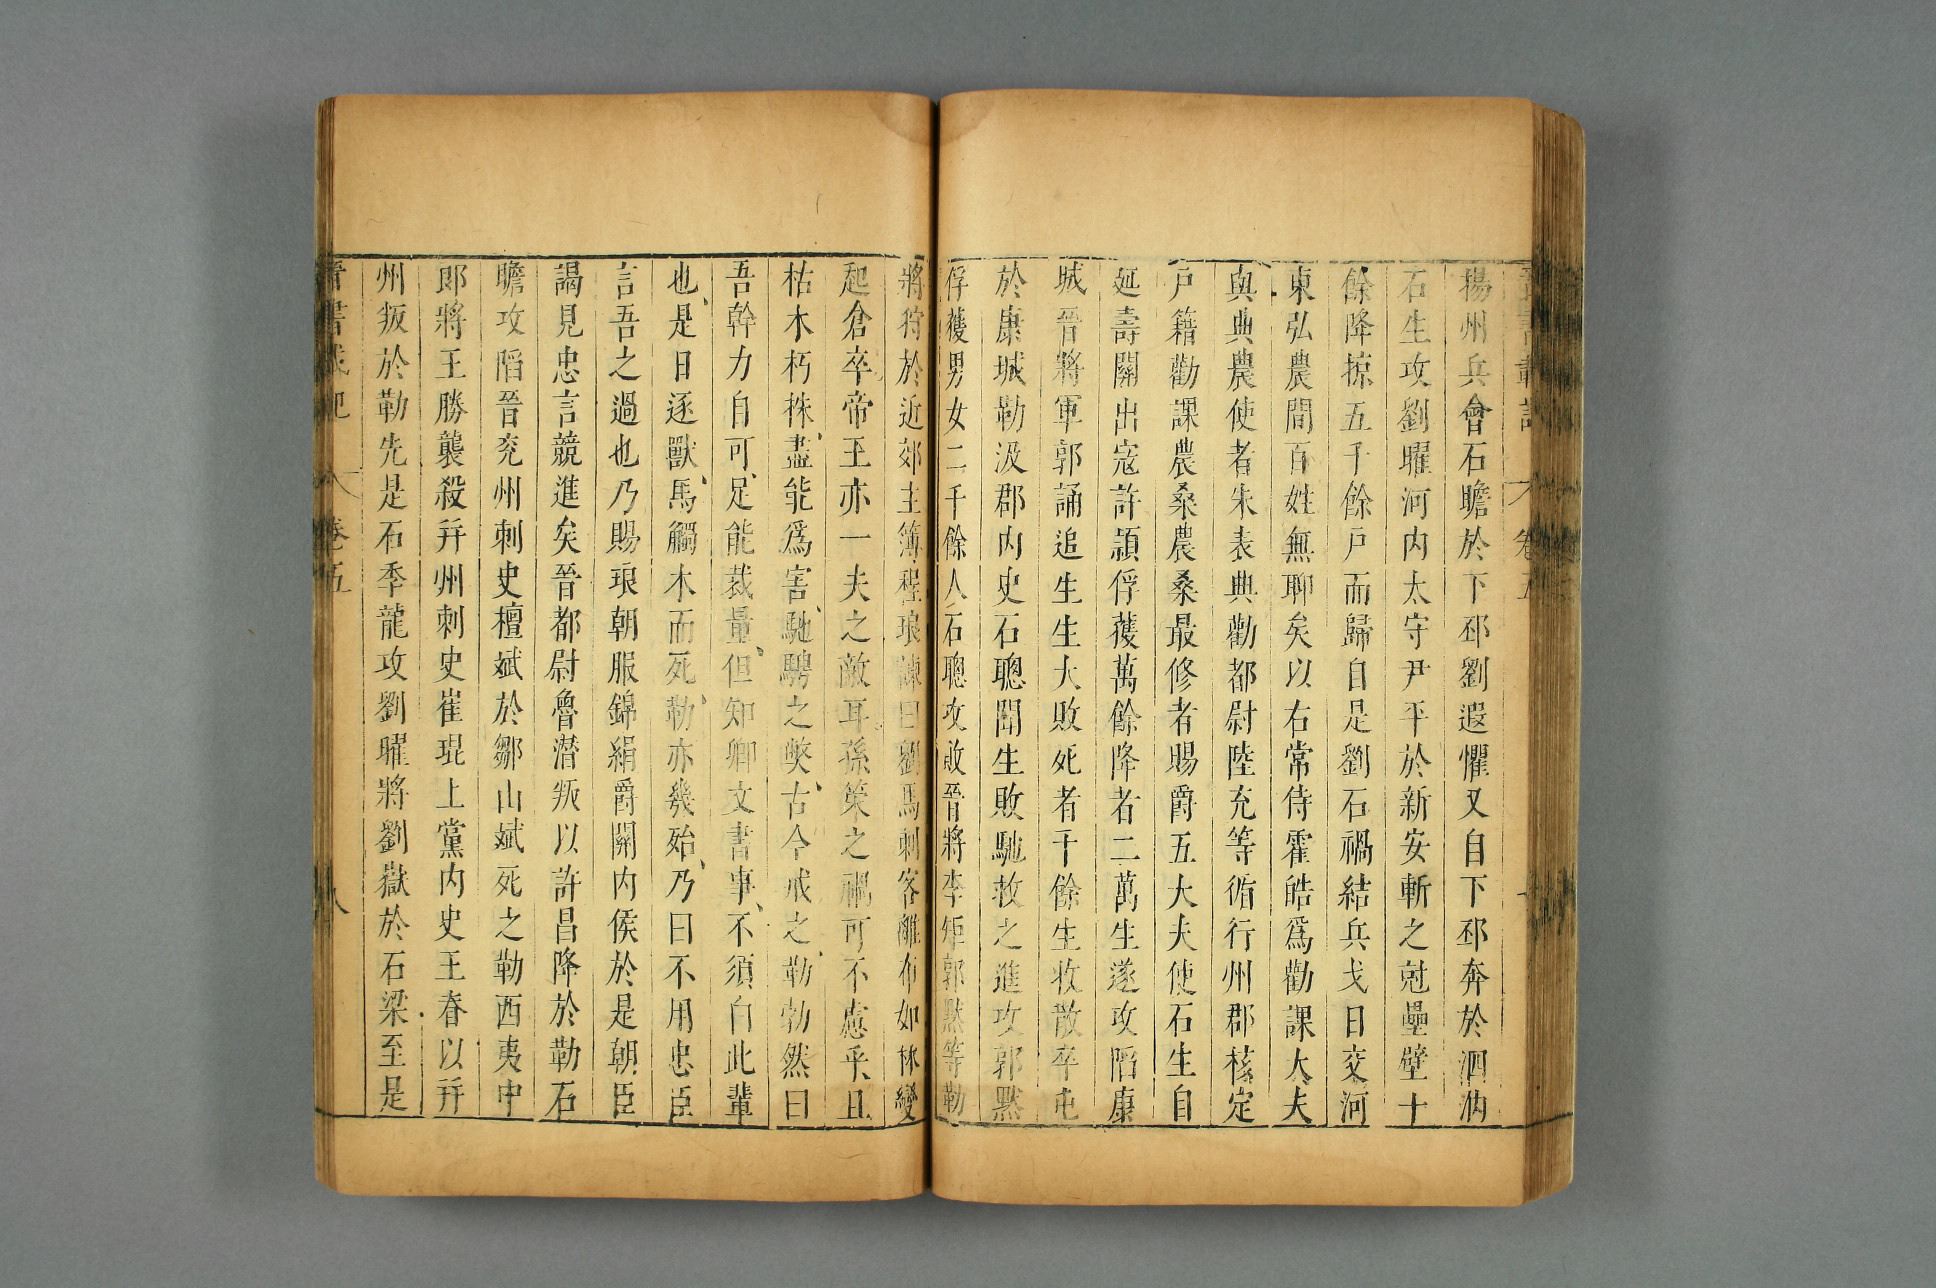 晉書載記 卷五 七
揚州兵會石瞻於下邳劉遐懼又自下邳奔於泗汭
石生攻劉曜河内太守尹平於新安斬之尅壘壁十
餘降掠五千餘戸而歸自是劉石禍結兵戈日交河
東弘農間百姓無聊矣以右常侍霍皓爲勸課大夫
與典農使者朱表典勸都尉陸充等循行州郡核定
戸籍勸課農桑農桑最修者賜爵五大夫使石生自
延壽關出寇許潁俘獲萬餘降者二萬生遂攻陷康
城晉將軍郭誦追生生大敗死者千餘生收散卒屯
於康城勒汲郡内史石聰聞生敗馳救之進攻郭默
俘獲男女二千餘人石聰攻敗晉將李矩郭默等勒
將狩於近郊主簿程琅諫曰劉馬刺客離布如林變
起倉卒帝王亦一夫之敵耳孫策之禍可不慮乎且
枯木朽株盡能爲害馳騁之獘古今戒之勒勃然曰
吾幹力自可足能裁量但知卿文書事不須白此輩
也是日逐獸馬觸木而死勒亦幾殆乃曰不用忠臣
言吾之過也乃賜琅朝服錦絹爵關内侯於是朝臣
謁見忠言競進矣晉都尉魯潜叛以許昌降於勒石
瞻攻陷晉兖州刺史檀斌於鄒山斌死之勒西夷中
郎將王勝襲殺并州刺史崔琨上黨内史王眘以并
州叛於勒先是石季龍攻劉曜將劉嶽於石梁至是
晉書載記 卷五 八